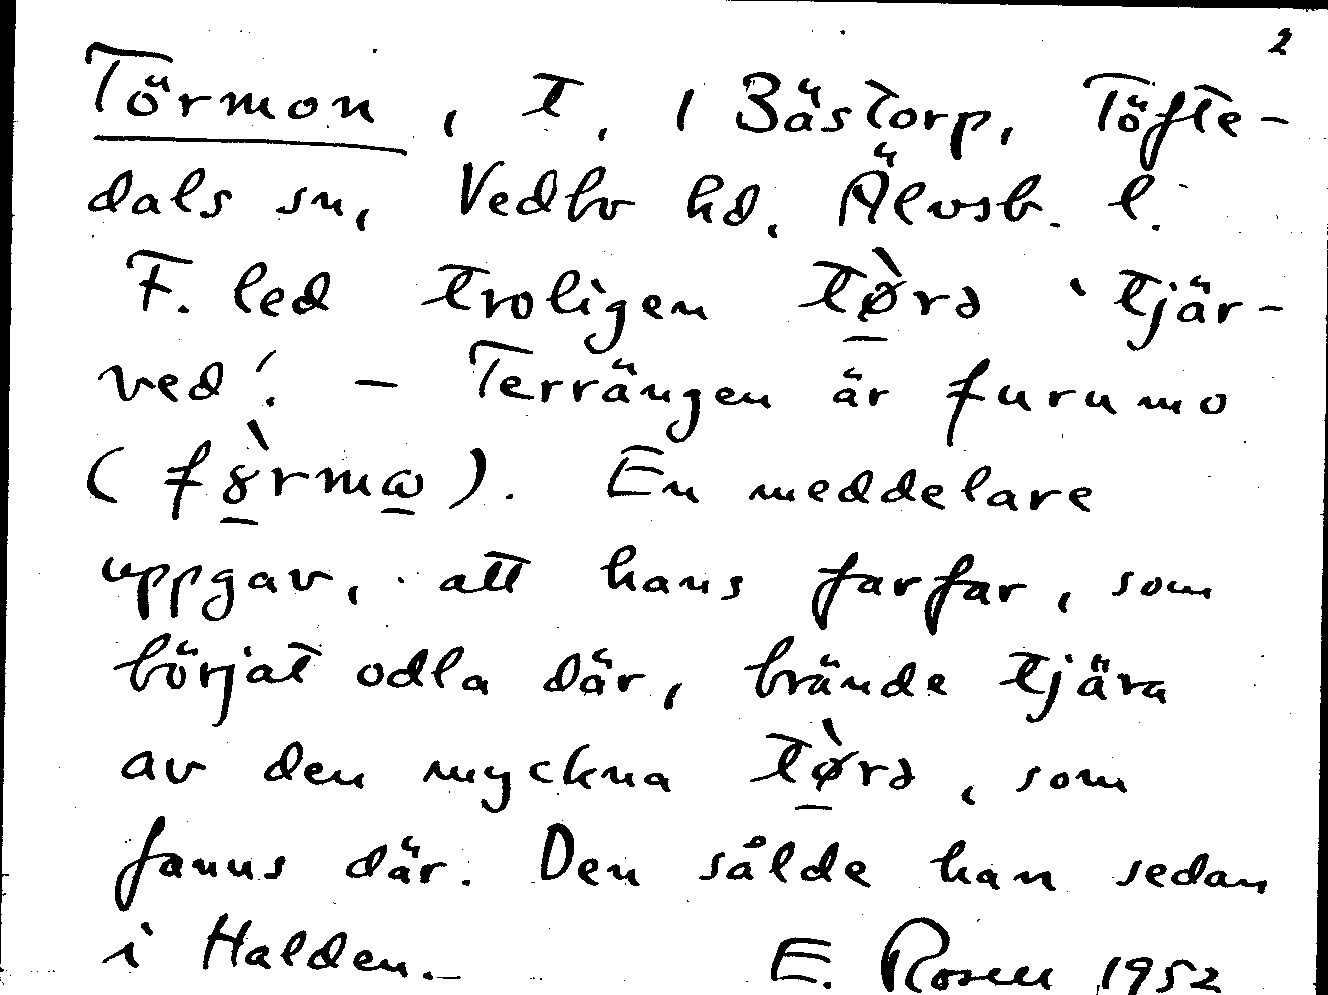 2
Törmon, t. i Bästorp, Töfte-
dals sn, Vedbo hd, Älvsb. l.
F. led troligen tø̠̀rə 'tjär-
ved'. – Terrängen är furumo
(fɤ̠̀rmɷ̠). En meddelare
uppgav, att hans farfar, som
börjat odla där, brände tjära
av den myckna tø̠̀rə, som
fanns där. Den sålde han sedan
i Halden.–
E. Rosell 1952